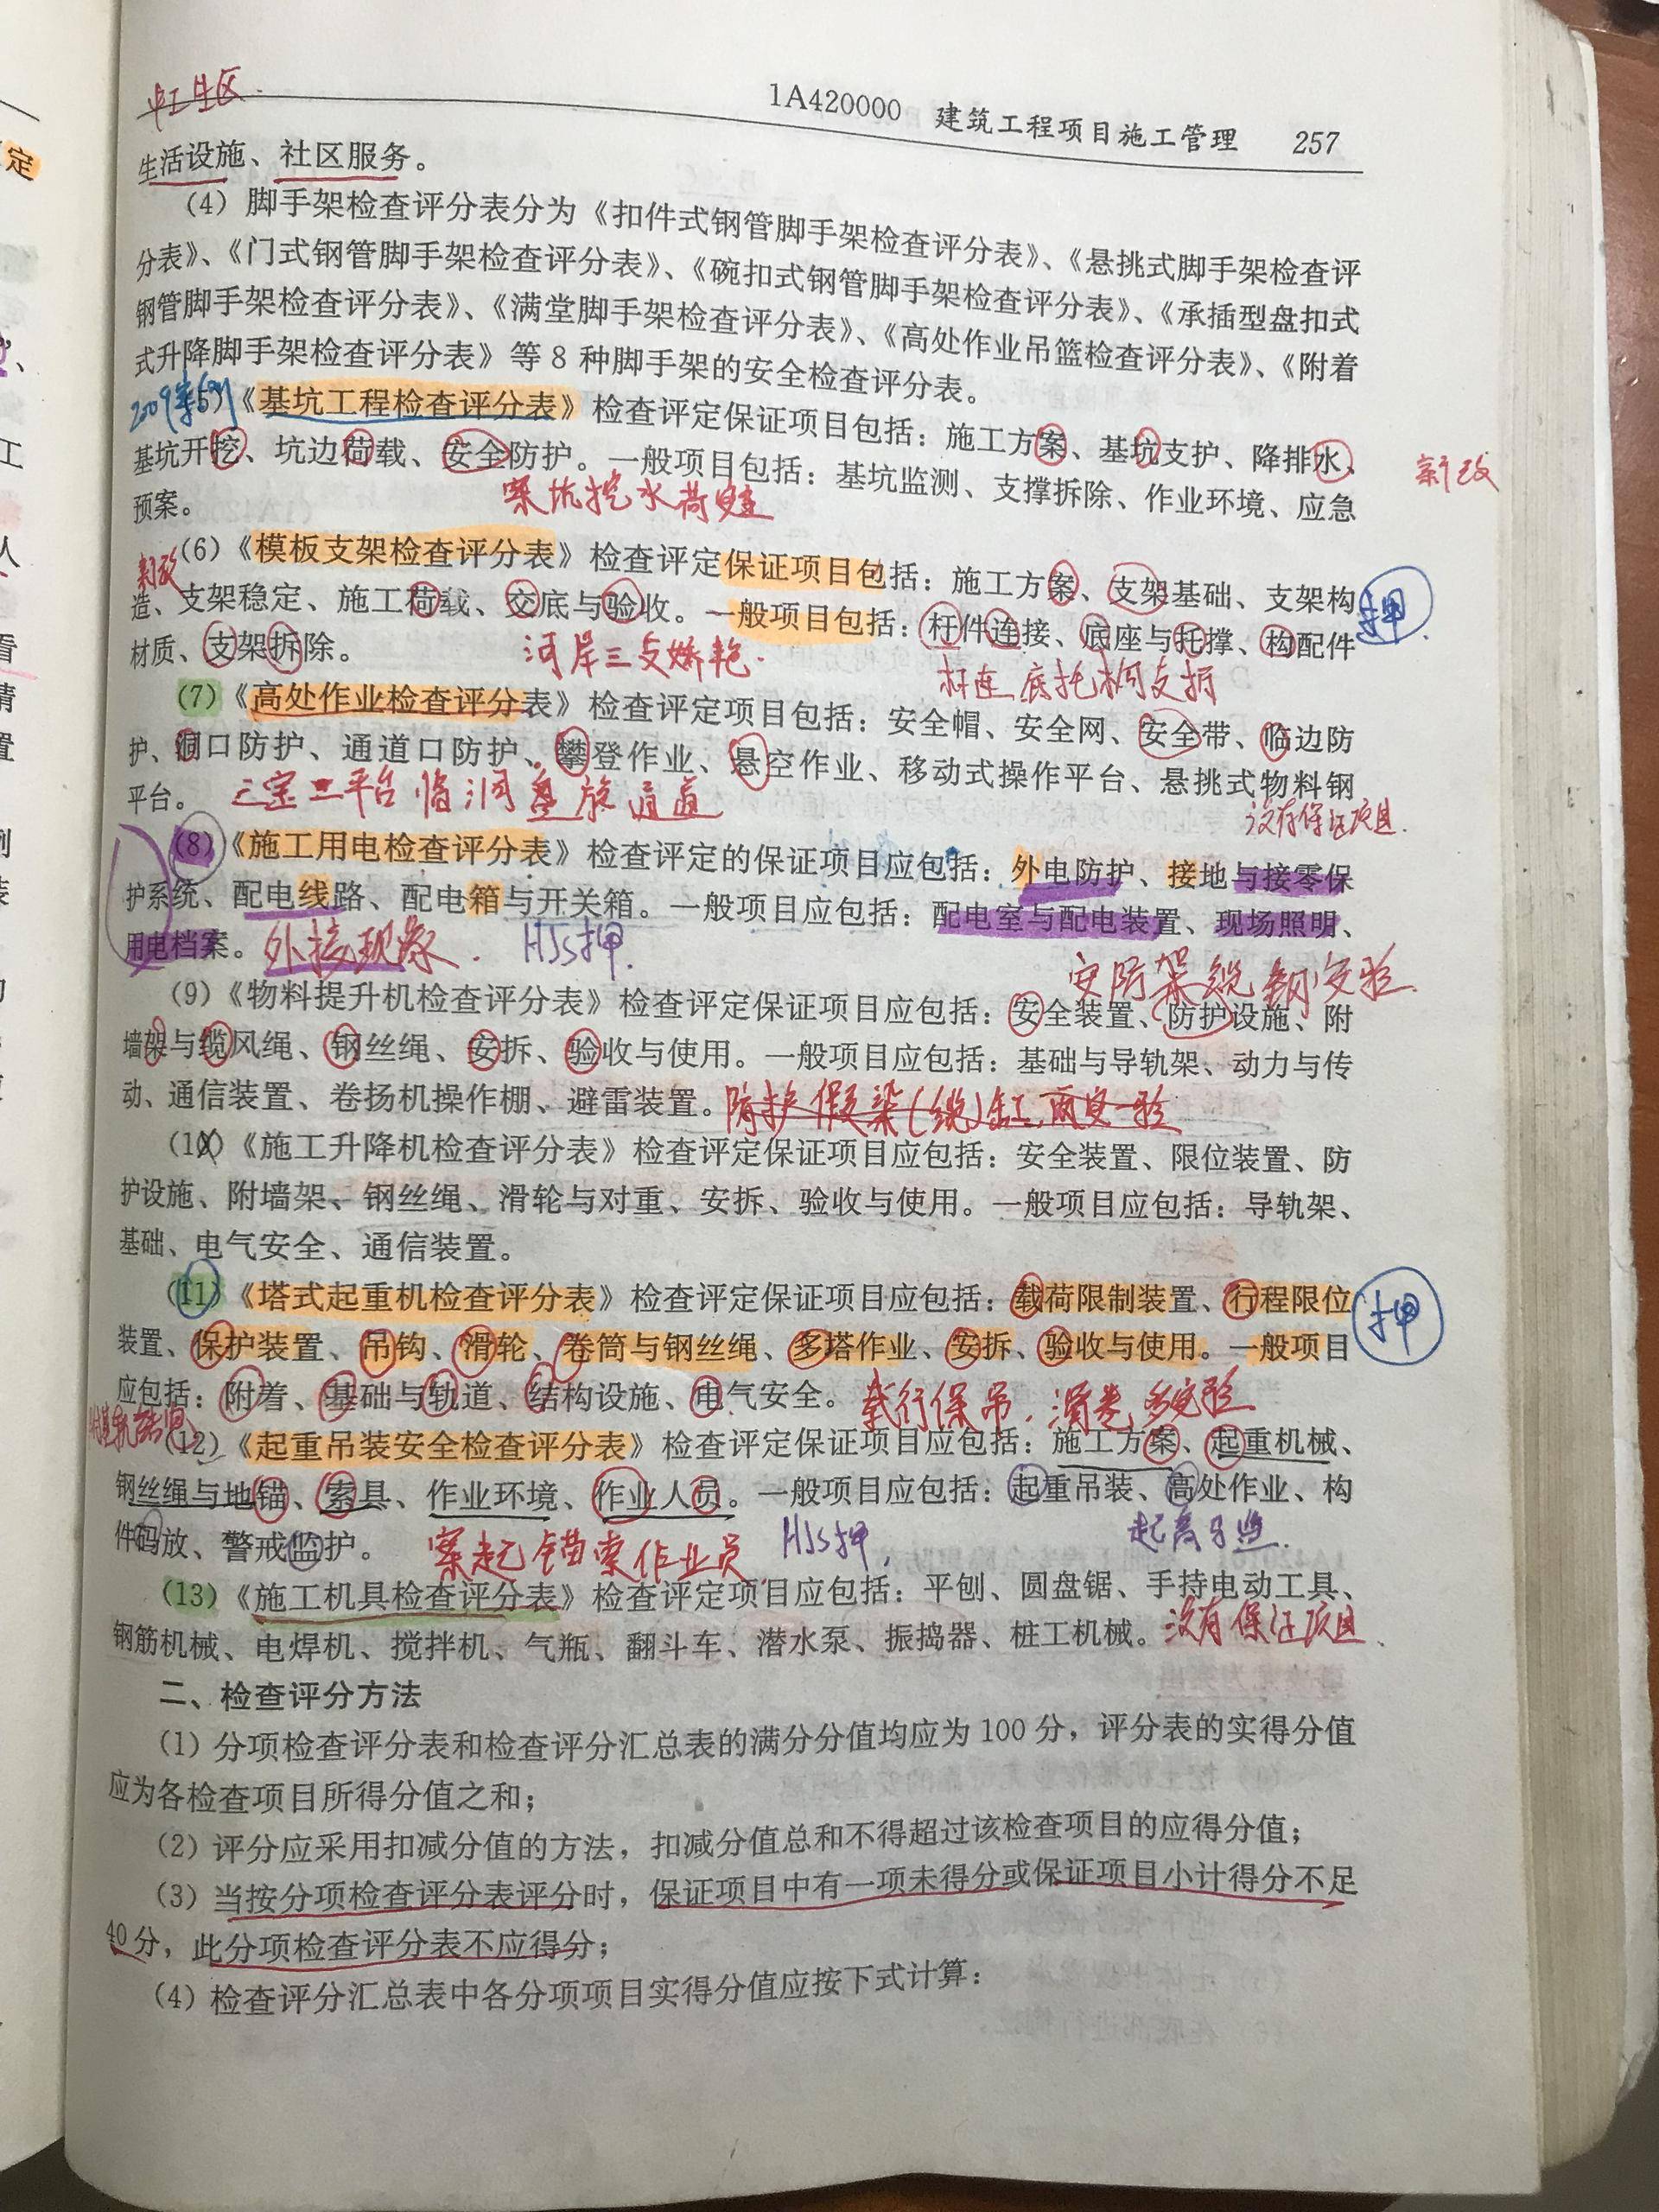 1A420000 建筑工程项目施工管理 257
生活设施、社区服务。
(4)脚手架检查评分表分为《扣件式钢管脚手架检查评
分表》、《门式钢管脚手架检查评分表》、《碗扣式钢管脚手架检查评分表》、《悬挑式脚手架检查评
钢管脚手架检查评分表》、《满堂脚手架检查评分表》、《承插型盘扣式
式升降脚手架检查评分表》等8种脚手架的安全检查评分表。《高处作业吊篮检查评分表》、《附着
2009案例
(5)《基坑工程检查评分表》检查评定保证项目包括：施工方案、基坑支护、降排水、
基坑开挖、坑边荷载、安全防护。一般项目包括：基坑监测、支撑拆除、作业环境、应急
新改
预案。
案坑挖水荷安
(6)《模板支架检查评分表》检查评定保证项目包括：施工方案、支架基础、支架构
新改
造、支架稳定、施工荷载、交底与验收。一般项目包括：杆件连接、底座与托撑、构配件
押
材质、支架拆除。
河岸三支娇艳.
杆连底托构支拆
(7)《高处作业检查评分表》检查评定项目包括：安全帽、安全网、安全带、临边防
护、洞口防护、通道口防护、攀登作业、悬空作业、移动式操作平台、悬挑式物料钢
平台。
三宝二平台 临洞 通道
没有保证项目.
(8)《施工用电检查评分表》检查评定的保证项目应包括：外电防护、接地与接零保
护系统、配电线路、配电箱与开关箱。一般项目应包括：配电室与配电装置、现场照明、
用电档案。
外接现象.
HJS押.
安防架缆钢安验.
(9)《物料提升机检查评分表》检查评定保证项目应包括：安全装置、防护设施、附
墙架与缆风绳、钢丝绳、安拆、验收与使用。一般项目应包括：基础与导轨架、动力与传
动、通信装置、卷扬机操作棚、避雷装置。
(10)《施工升降机检查评分表》检查评定保证项目应包括：安全装置、限位装置、防
护设施、附墙架、钢丝绳、滑轮与对重、安拆、验收与使用。一般项目应包括：导轨架、
基础、电气安全、通信装置。
(11)《塔式起重机检查评分表》检查评定保证项目应包括：载荷限制装置、行程限位
押
装置、保护装置、吊钩、滑轮、卷筒与钢丝绳、多塔作业、安拆、验收与使用。一般项目
应包括：附着、基础与轨道、结构设施、电气安全。
载行保吊，滑卷多安验
(12)《起重吊装安全检查评分表》检查评定保证项目应包括：施工方案、起重机械、
钢丝绳与地锚、索具、作业环境、作业人员。一般项目应包括：起重吊装、高处作业、构
件码放、警戒监护。
案起锚索作业员
HJS押.
(13)《施工机具检查评分表》检查评定项目应包括：平刨、圆盘锯、手持电动工具、
钢筋机械、电焊机、搅拌机、气瓶、翻斗车、潜水泵、振捣器、桩工机械。
没有保证项目.
二、检查评分方法
(1)分项检查评分表和检查评分汇总表的满分分值均应为100分，评分表的实得分值
应为各检查项目所得分值之和；
(2)评分应采用扣减分值的方法，扣减分值总和不得超过该检查项目的应得分值；
(3)当按分项检查评分表评分时，保证项目中有一项未得分或保证项目小计得分不足
40分，此分项检查评分表不应得分；
(4)检查评分汇总表中各分项项目实得分值应按下式计算：